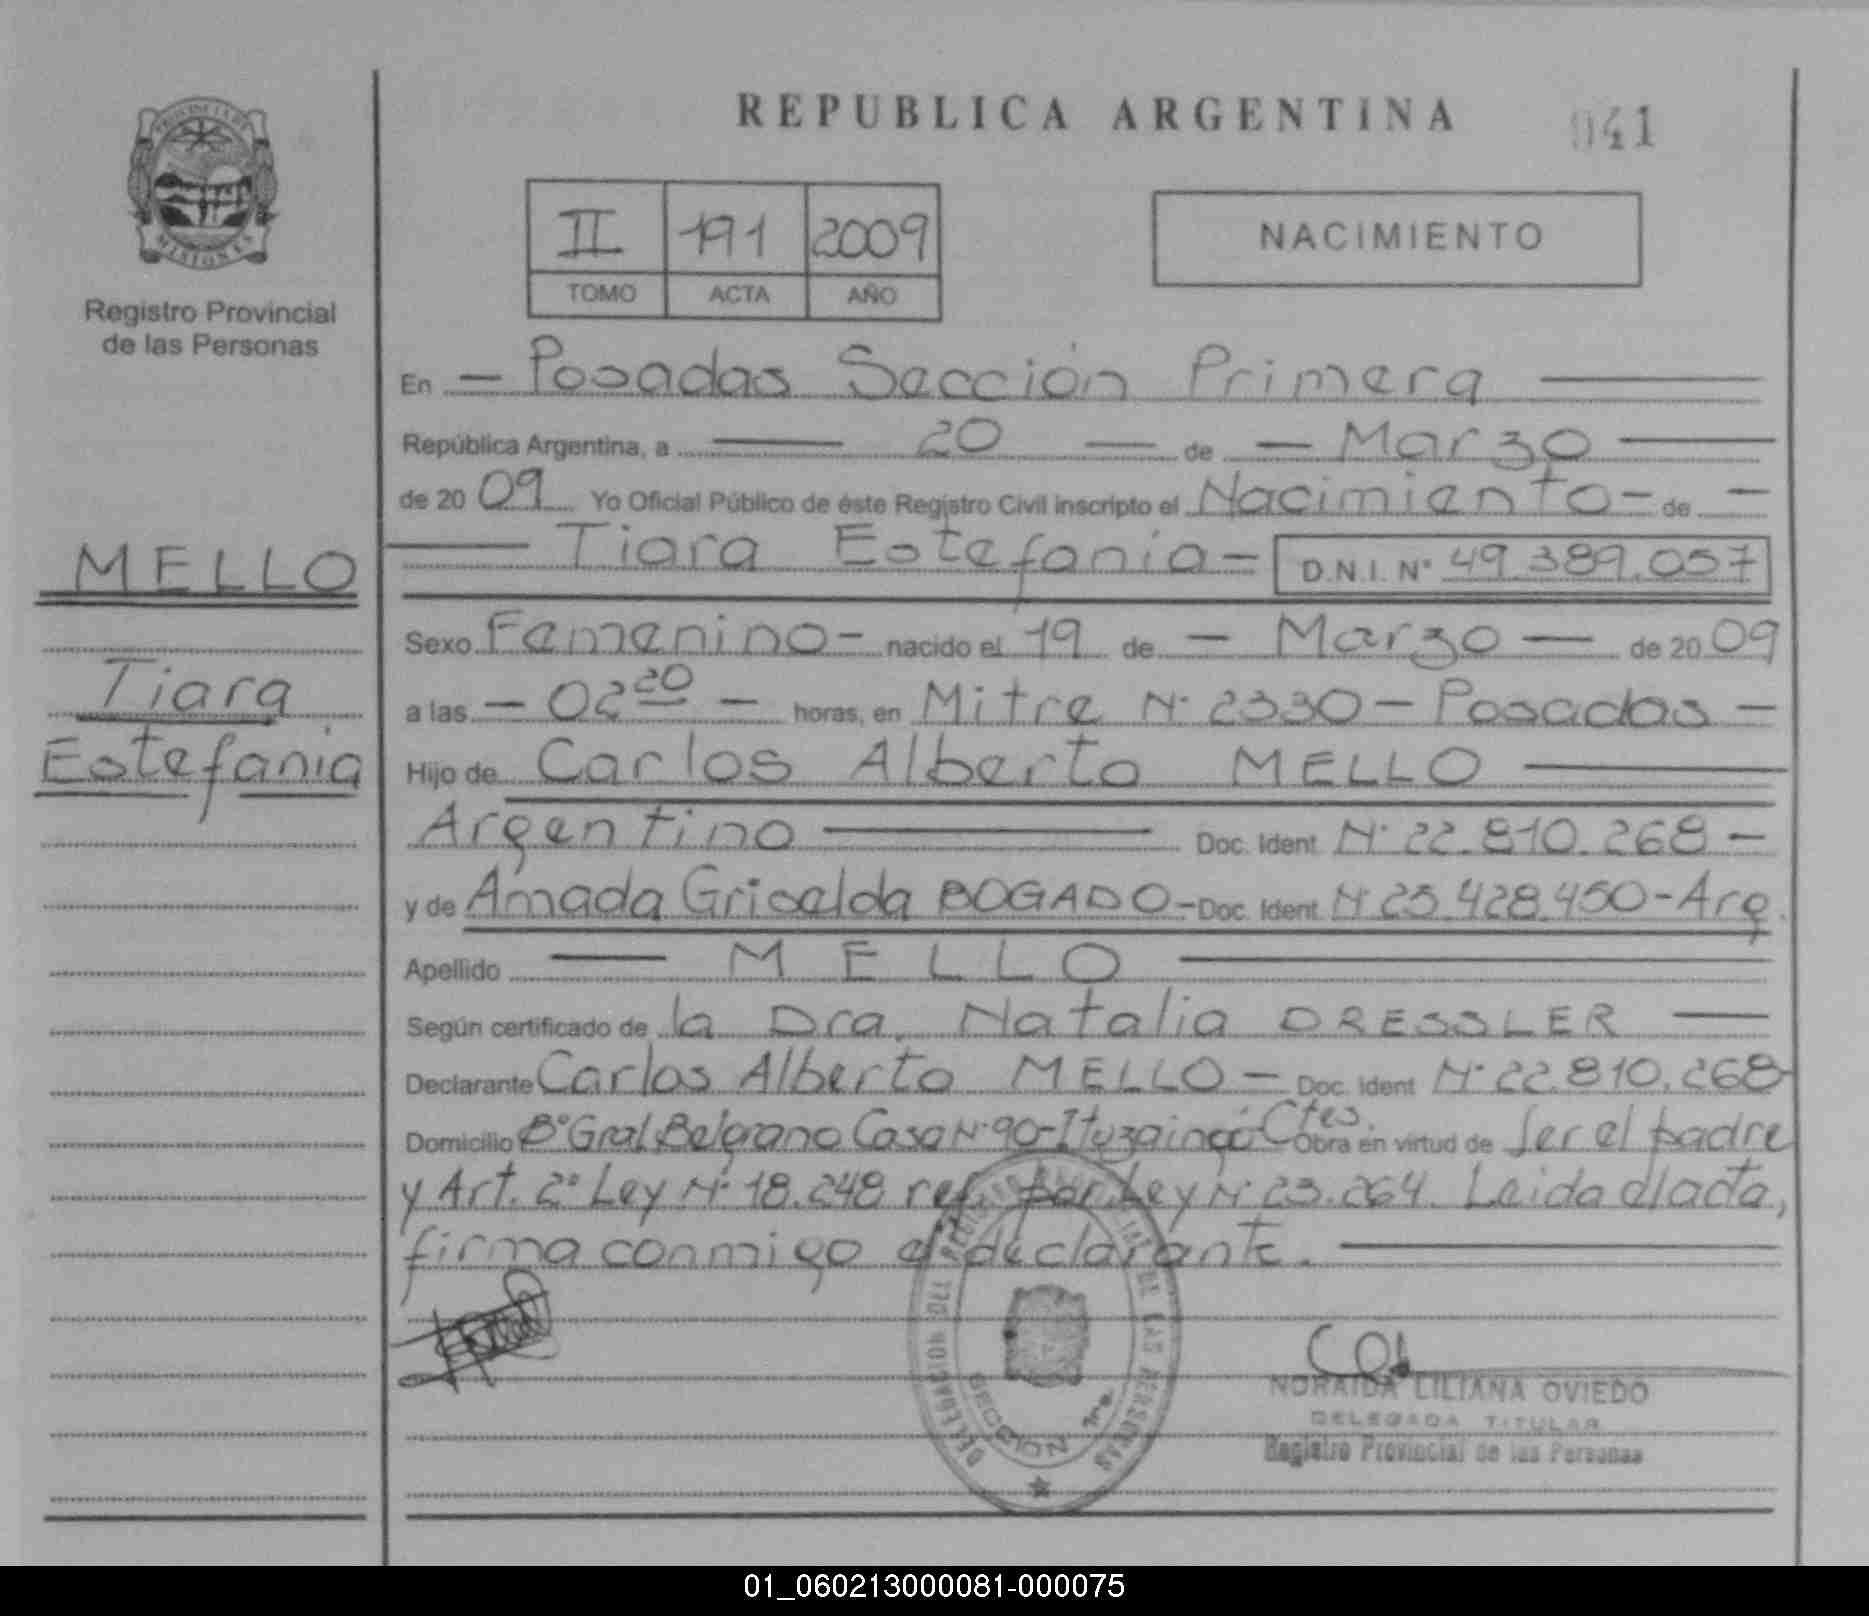 REPUBLICA ARGENTINA
041
PROVINCIA DE
MISIONES
Registro Provincial
de las Personas
II 191 2009
TOMO ACTA AÑO
NACIMIENTO
En — Posadas Sección Primera —
República Argentina, a — 20 — de — Marzo —
de 20 09 Yo Oficial Público de éste Registro Civil inscripto el Nacimiento - de —
— Tiara Estefania - D.N.I. Nº 49.389.057
MELLO
Tiara
Estefania
Sexo Femenino - nacido el 19 de — Marzo — de 20 09
a las — 02 20 — horas, en Mitre Nº 2330 - Posadas -
Hijo de Carlos Alberto MELLO —
Argentino — Doc. Ident Nº 22.810.268 -
y de Amada Griselda BOGADO - Doc. Ident Nº 25.428.450 - Arg.
Apellido — MELLO —
Según certificado de la Dra. Natalia DRESSLER —
Declarante Carlos Alberto MELLO - Doc. Ident Nº 22.810.268
Domicilio Bº Gral Belgrano Casa Nº 90 - Ituzaingó - Ctes. Obra en virtud de ser el padre
y Art. 2º Ley Nº 18.248 ref por Ley Nº 23.264. Leida el acta,
firma conmigo el declarante. —
DELEGACION DEL REGISTRO PROVINCIAL DE LAS PERSONAS
SECCION 1ra.
NORAIDA LILIANA OVIEDO
DELEGADA TITULAR
Registro Provincial de las Personas
01_060213000081-000075